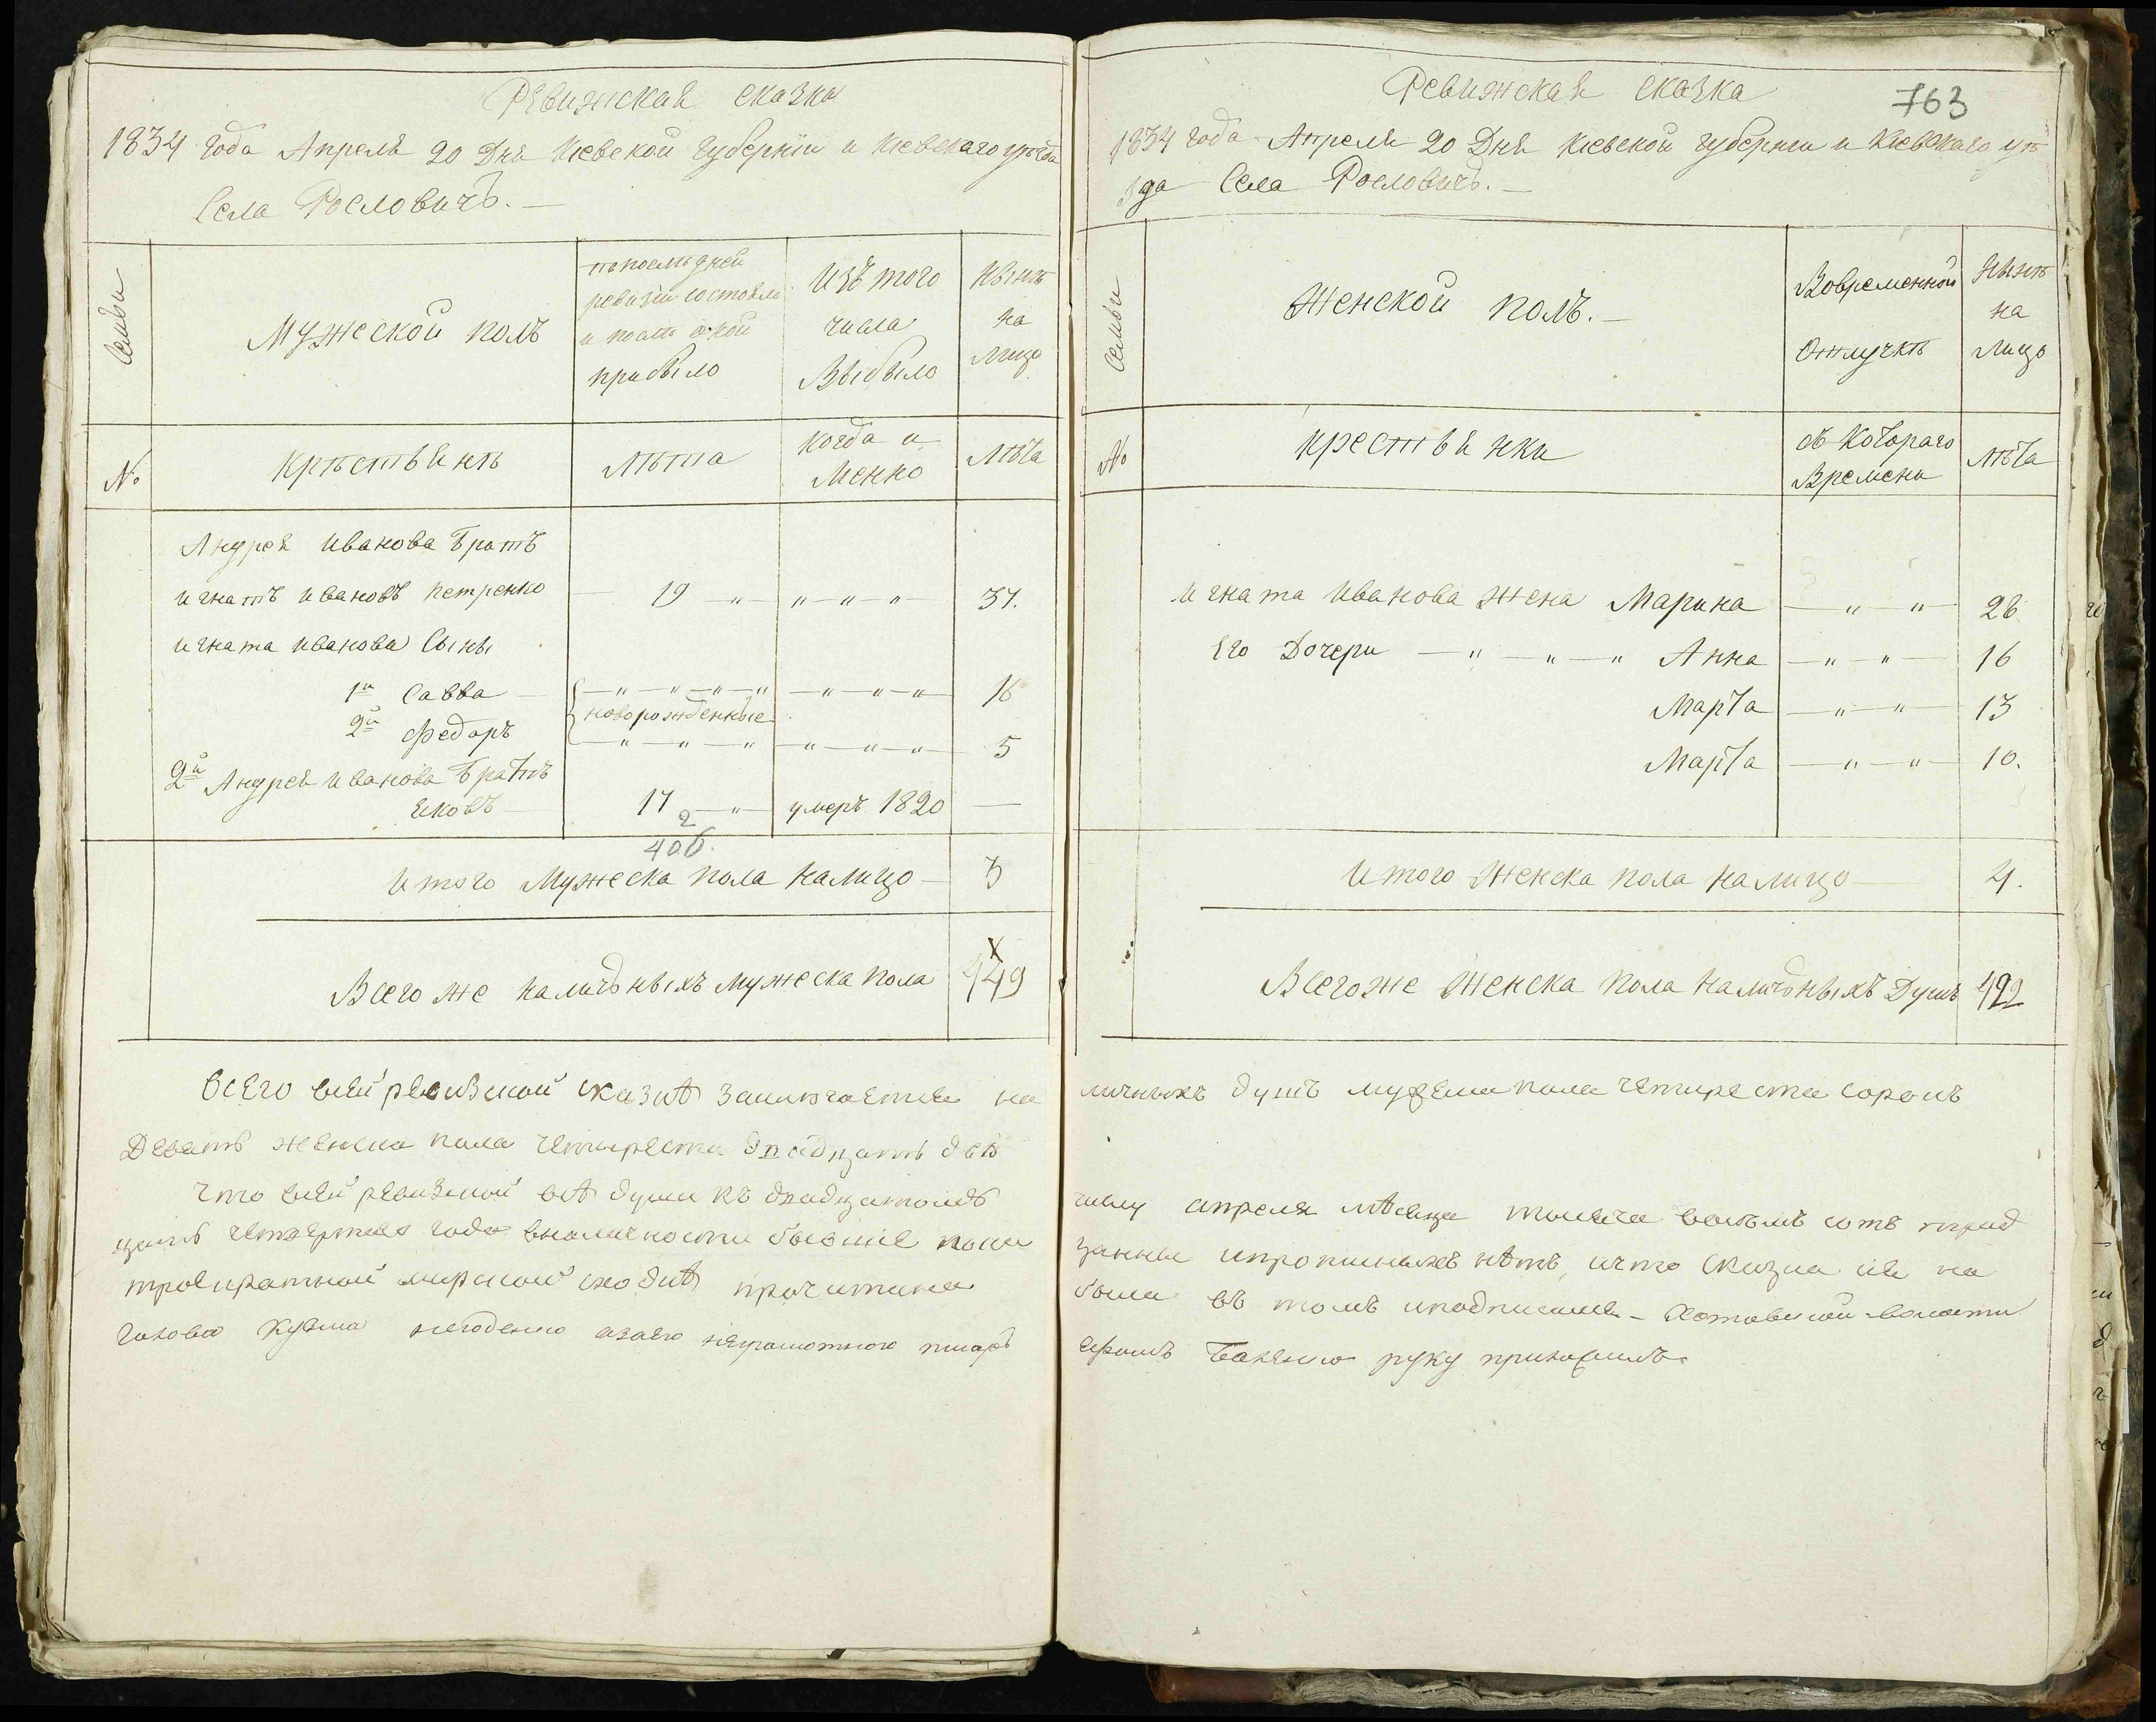 Ревижская сказка
1834 года Апреля 20 Дня Киевской губернии и Киевскаго уезда
Села Рословичъ.
Семьи
Мужеской полъ
попоследней
ревизии состояло
и после оной
прибыло
Изъ того
числа
Выбыло
Ныне
на
Лицо
№
Крѣстьянѣ
Лѣта
когда и
Менно
Лѣта
Андрея Иванова Братъ
игнатъ ивановъ петренко — 19 — " — " — " — " — 37.
игната иванова Сыны
1й Савва — " — " — " — " — " — " — " — 16
новорожденные
2й Федоръ — " — " — " — " — " — " — 5
2й Андрея иванова Братъ
яковъ 17 2 — " — умеръ 1820 —
406.
Итого Мужеска пола налицо — 3
Всего же наличныхъ мужеска пола 449
Ревижская сказка
763
1834 года Апреля 20 Дня Киевской губернии и Киевскаго уѣ
зда Села Рословичъ. —
Семьи
Женской полъ. —
Вовременной
Отлучкѣ
Нынѣ
на
Лицо
№
крестьянки
съ Котораго
Времени
лѣта
игната Иванова жена Марина — " — " — 26
Его Дочери — " — " — " Анна — " — " — 16
Марта — " — " — 13
Марта — " — " — 10.
Итого Женска пола налицо — 4.
Всегоже Женска пола наличныхъ Душъ 422
Всего сей ревизской сказкѣ заключается на личныхъ душъ мужеска пола четыреста сорокъ
Девять женска пола четыреста двадцать двѣ
что сей ревизской всѣ души къ двадцатомъ числу апреля мѣсяца тысяча восемъ сотъ трид
цать четвертаго года вналичности бывшие пока занны ипрописныхъ нѣтъ, ичто сказка сия на
троекратной мирской сходкѣ прочитана была въ томъ иподписался — Хотовской волости
Голова Кузма азаего неграмотного писарь руку приложилъ